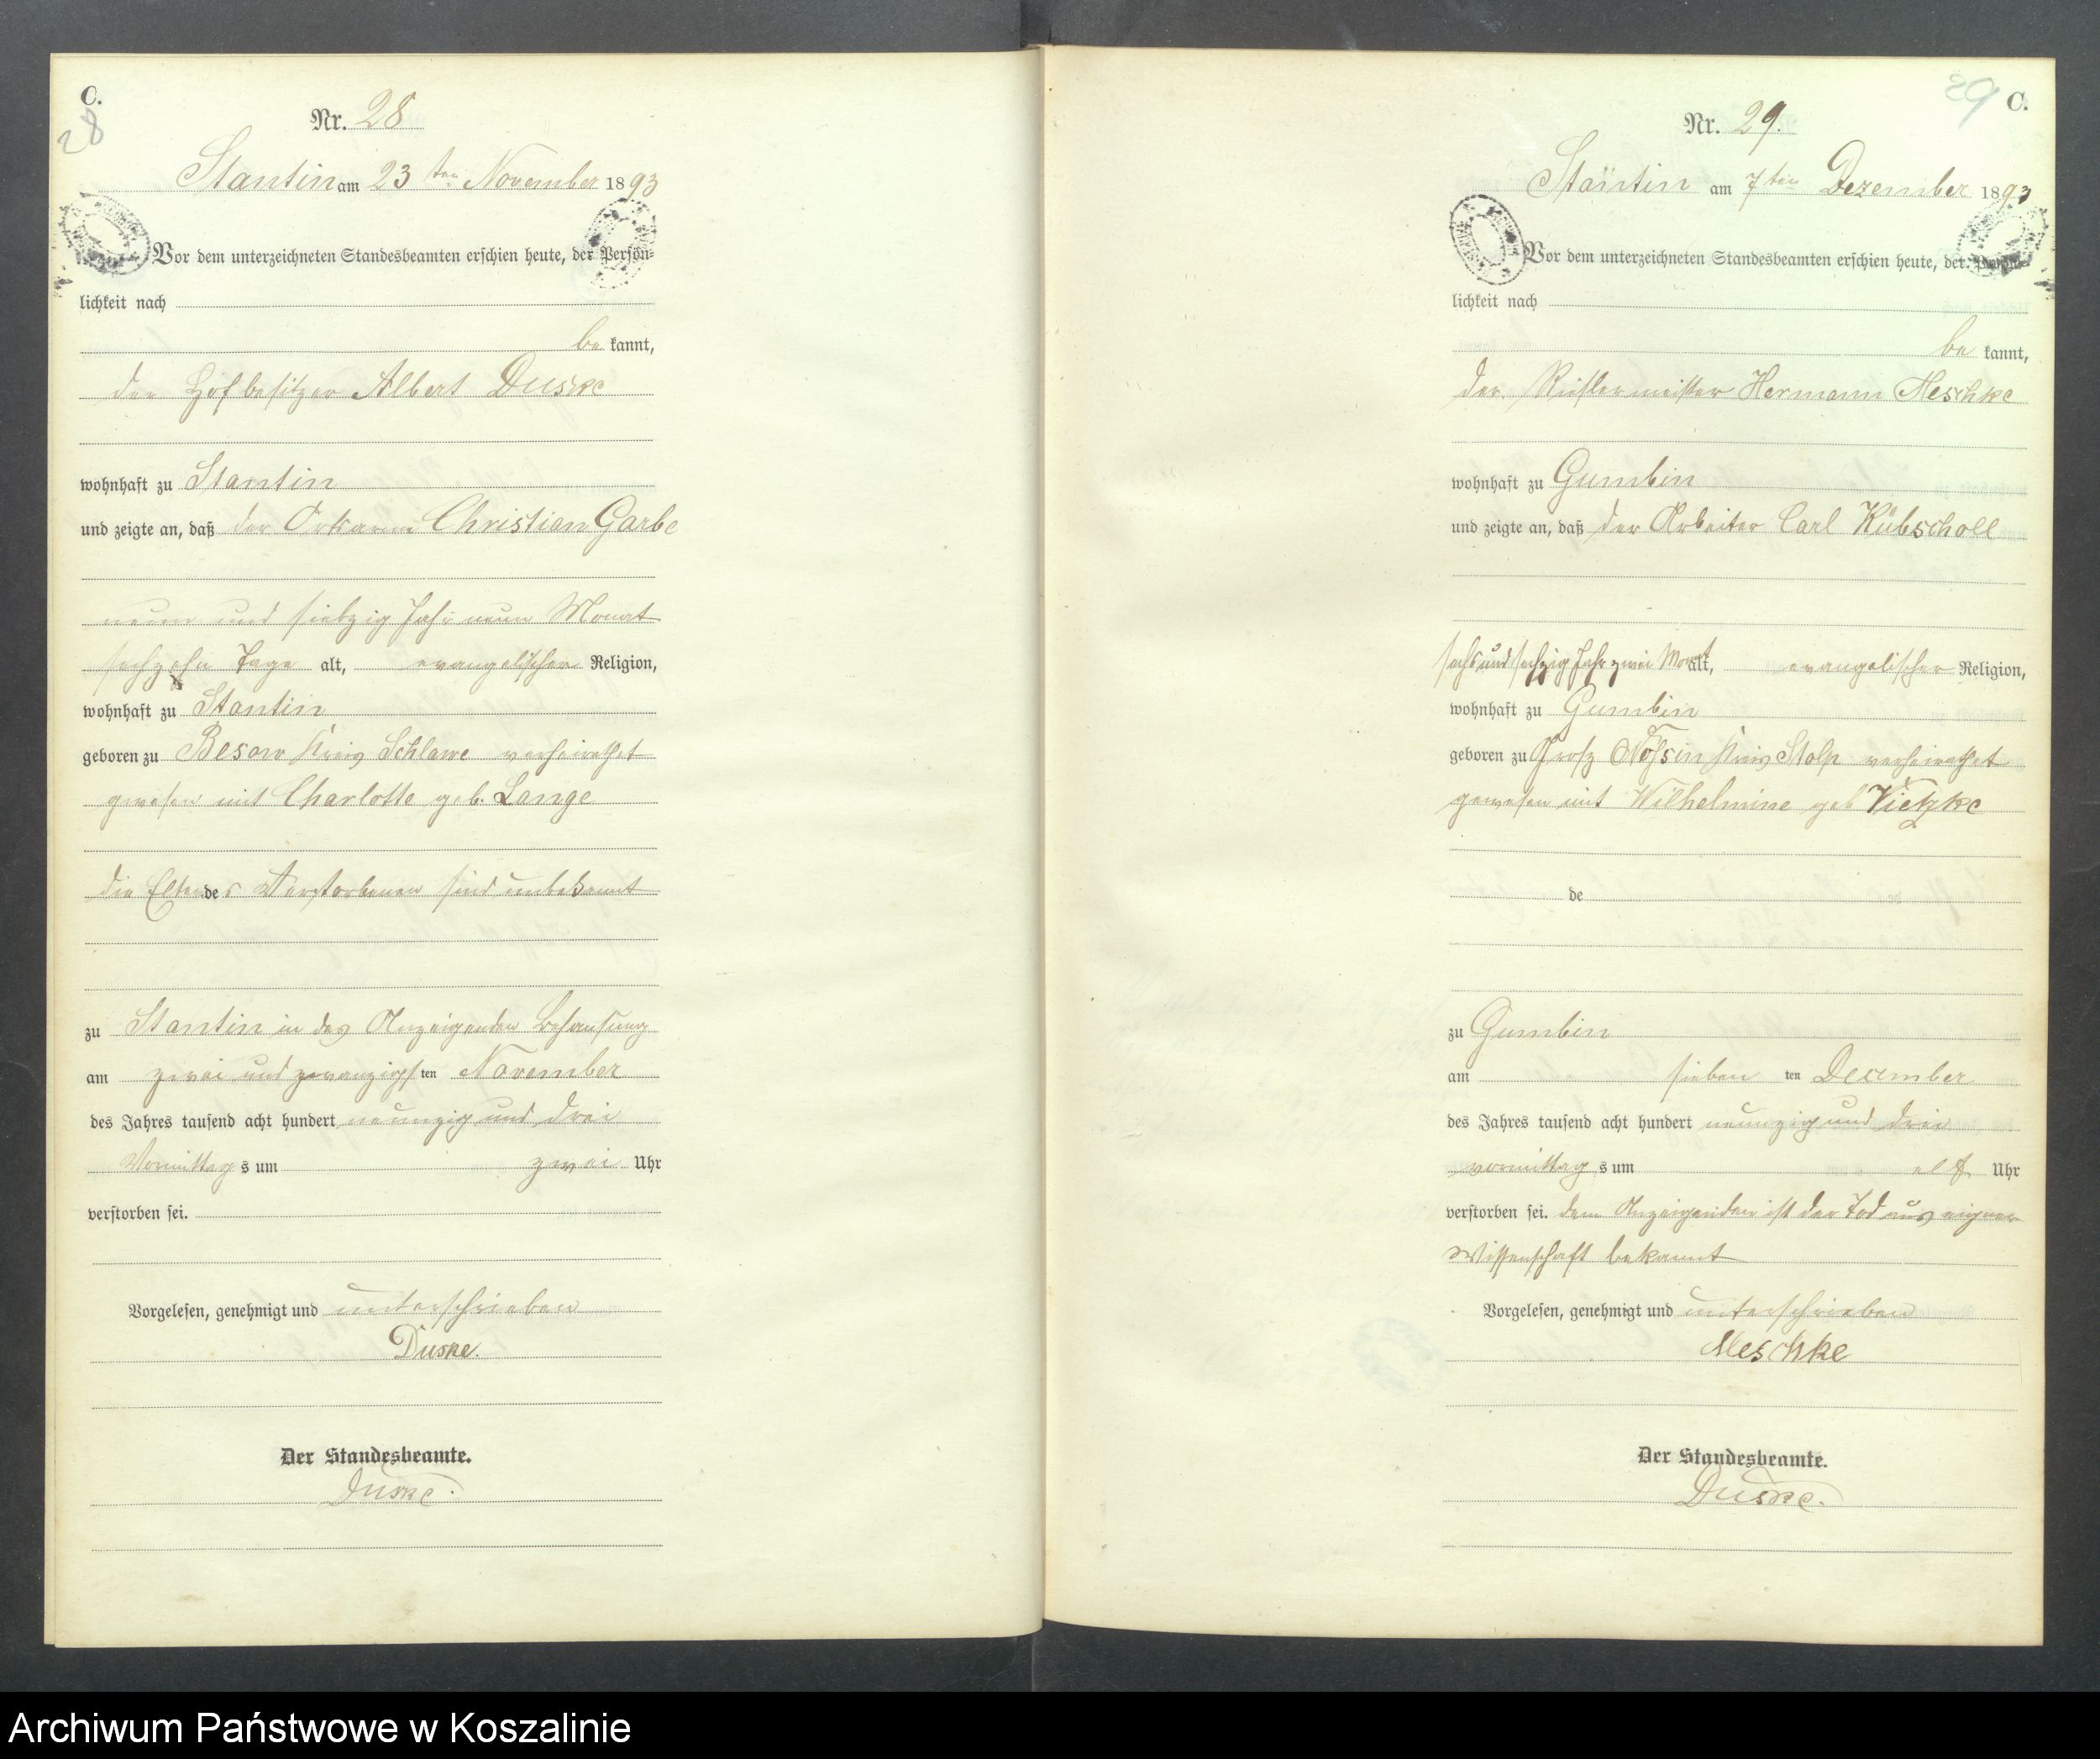 C.
28
Nr. 28
Stantin am 23 ten November 1893
Vor dem unterzeichneten Standesbeamten erschien heute, der Persön-
lichkeit nach
be kannt,
der Hofbesitzer Albert Duske
wohnhaft zu Stantin
und zeigte an, daß der Ortsarme Christian Garbe
neun und siebzig Jahr neun Monat
sechzehn Tage alt, evangelischer Religion,
wohnhaft zu Stantin
geboren zu Besow Kreis Schlawe verheirathet
gewesen mit Charlotte geb. Lange
die Eltern des Verstorbenen sind unbekannt
zu Stantin in des Anzeigenden Behausung
am zwei und zwanzigsten November
des Jahres tausend acht hundert neunzig und drei
Vormittags um zwei Uhr
verstorben sei.
Vorgelesen, genehmigt und unterschrieben
Duske.
Der Standesbeamte.
Duske.
29 C.
Nr. 29.
Stantin am 7ten Dezember 1893
Vor dem unterzeichneten Standesbeamten erschien heute, der Persön-
lichkeit nach
be kannt,
der Hermann Meschke
wohnhaft zu Gumbin
und zeigte an, daß der Arbeiter Carl Kübscholl
sechs und sechzig Jahr zwei Monat alt, evangelischer Religion,
wohnhaft zu Gumbin
geboren zu Groß Nossin Kreis Stolp verheirathet
gewesen mit Wilhelmine geb Vietzke
de
zu Gumbin
am sieben ten December
des Jahres tausend acht hundert neunzig und drei
vormittags um elf Uhr
verstorben sei. dem Anzeigenden ist der Tod aus eigener
Wissenschaft bekannt
Vorgelesen, genehmigt und unterschrieben
Meschke
Der Standesbeamte.
Duske.
Archiwum Państwowe w Koszalinie